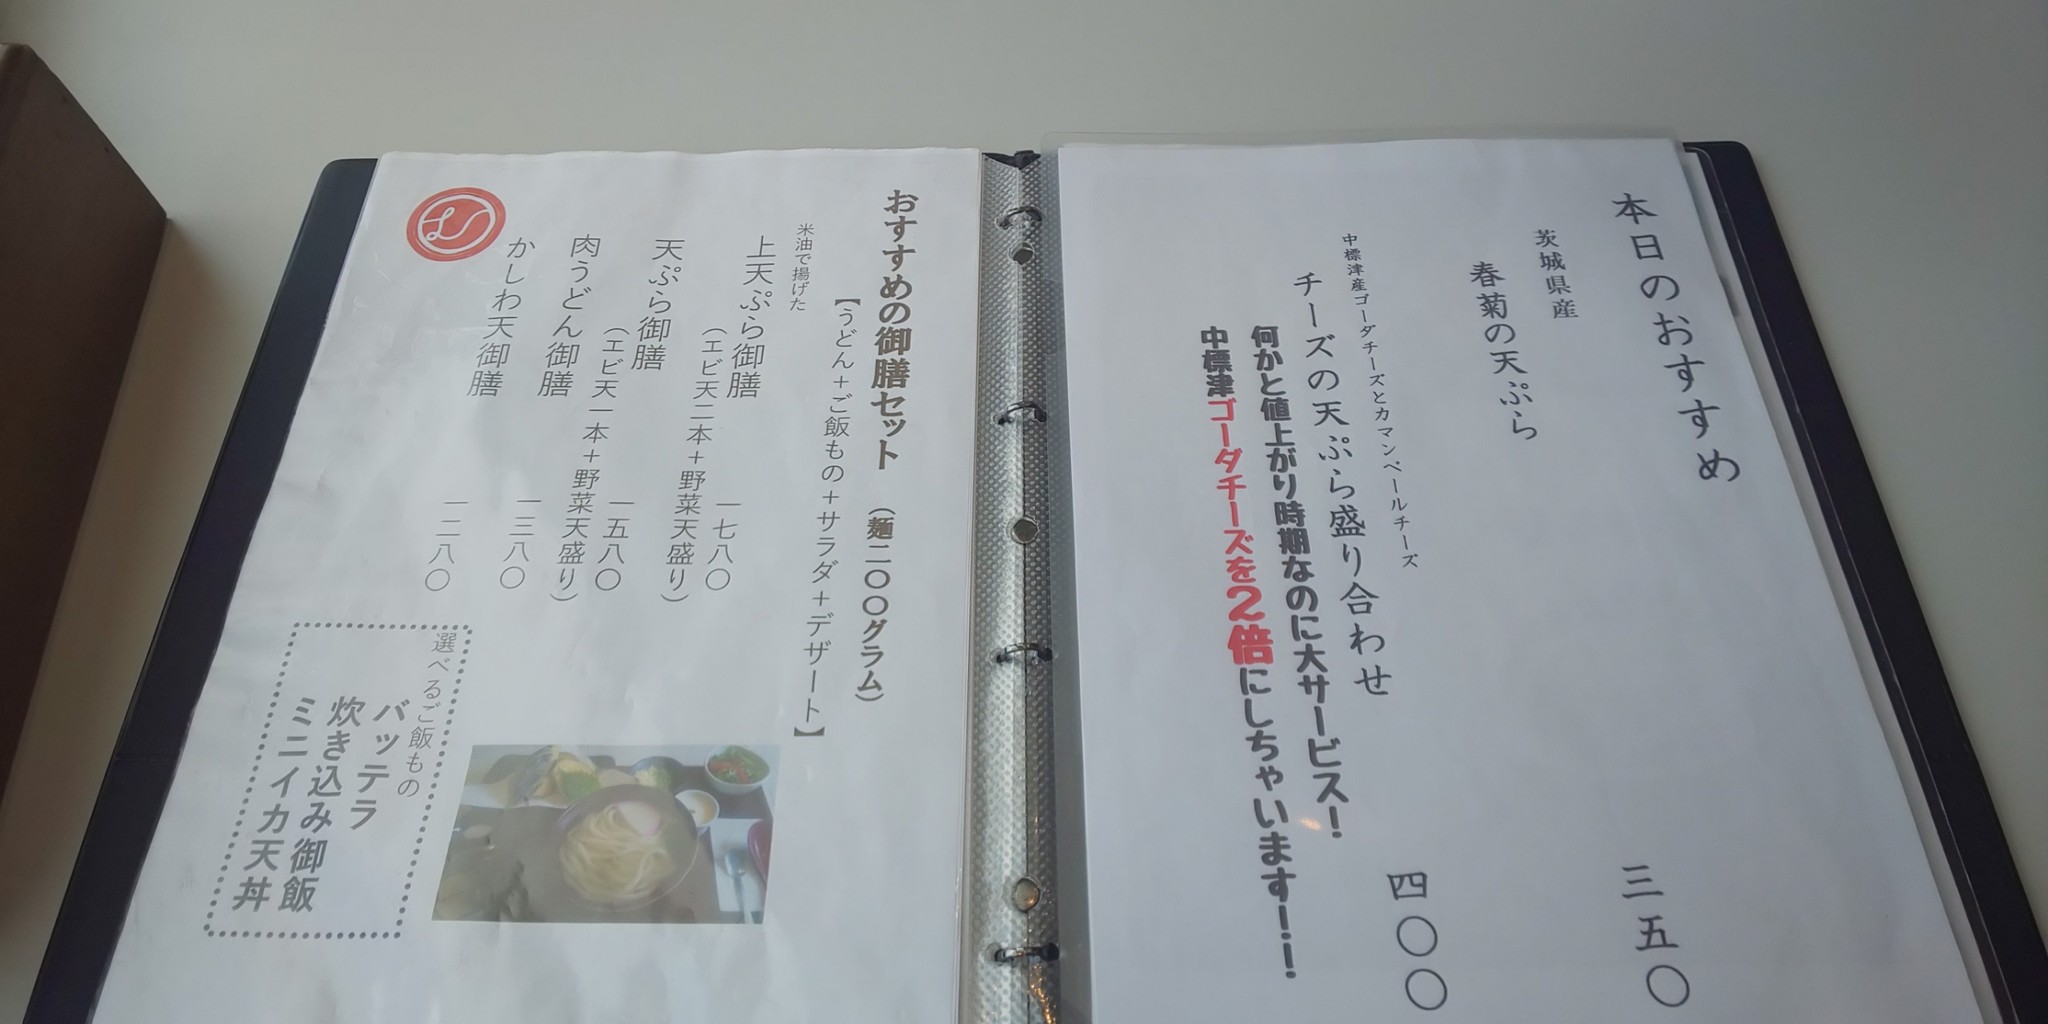 本日のおすすめ
茨城県産
春菊の天ぷら
三五〇
中標津産ゴーダチーズとカマンベールチーズ
チーズの天ぷら盛り合わせ
四〇〇
何かと値上がり時期なのに大サービス！
中標津ゴーダチーズを2倍にしちゃいます！！
おすすめの御膳セット （麺二〇〇グラム）
【うどん＋ご飯もの＋サラダ＋デザート】
米油で揚げた
上天ぷら御膳 一七八〇
（エビ天二本＋野菜天盛り）
天ぷら御膳 一五八〇
（エビ天一本＋野菜天盛り）
肉うどん御膳 一三八〇
かしわ天御膳 一二八〇
選べるご飯もの
バッテラ
炊き込み御飯
ミニイカ天丼